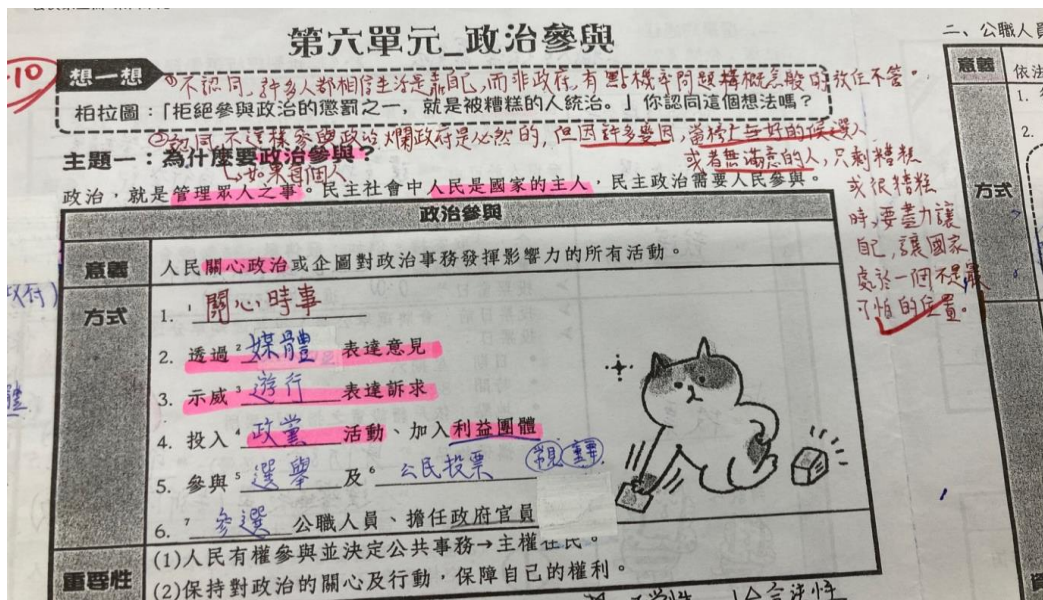 第六單元_政治參與
+10
想一想
①不認同,許多人都相信生活是靠自己,而非政府,有點機率問題 放任不管。
柏拉圖:「拒絕參與政治的懲罰之一,就是被糟糕的人統治。」你認同這個想法嗎?
②認同,不這樣參與政治,爛政府是必然的,但因許多變因,當榜上無好的候選人
或者無滿意的人,只剩糟糕
或很糟糕
時,要盡力讓
自己,讓國家
處於一個不是最
可怕的位置。
如果每個人
主題一:為什麼要政治參與?
政治,就是管理眾人之事。民主社會中人民是國家的主人,民主政治需要人民參與。
政治參與
意義
人民關心政治或企圖對政治事務發揮影響力的所有活動。
方式
1. 1 關心時事
2. 透過 2 媒體 表達意見
3. 示威 3 遊行 表達訴求
4. 投入 4 政黨 活動、加入利益團體
5. 參與 5 選舉 及 6 公民投票
6. 7 參選 公職人員、擔任政府官員
重要性
(1)人民有權參與並決定公共事務→主權在民。
(2)保持對政治的關心及行動,保障自己的權利。
二、公職人員
意義
依法
1.
2.
方式